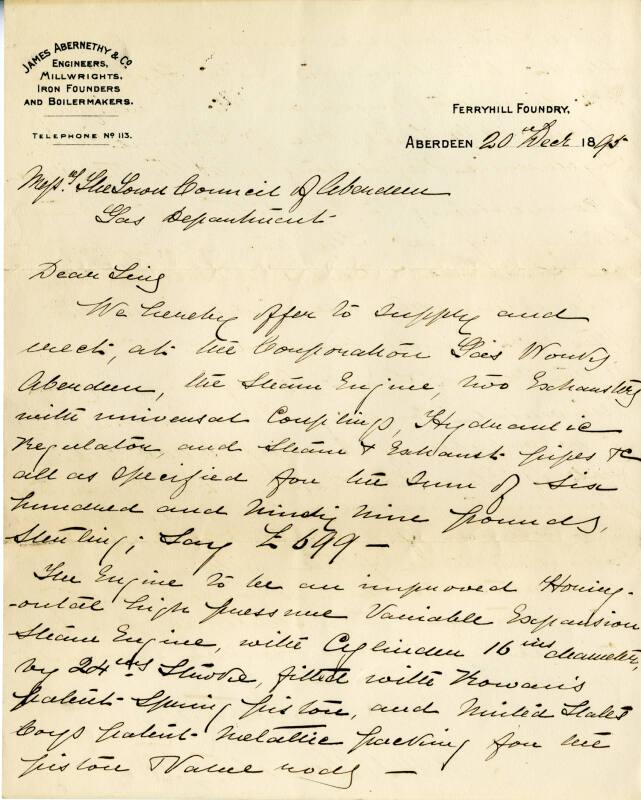 JAMES ABERNETHY & Co.
ENGINEERS,
MILLWRIGHTS,
IRON FOUNDERS
AND BOILERMAKERS.
TELEPHONE No 113.
FERRYHILL FOUNDRY,
ABERDEEN 20th Decr 1895
Messrs. The Town Council of Aberdeen
Gas Department
Dear Sirs
We hereby offer to supply and
erect, at the Corporation Gas Works
Aberdeen, the Steam Engine, two Exhausters
with universal Couplings, Hydraulic
Regulator, and Steam & Exhaust pipes &c
all as specified for the Sum of Six
hundred and Ninety Nine pounds,
Sterling; Say £699 —
The Engine to be an improved Horiz-
-ontal high pressure Variable Expansion
Steam Engine, with Cylinder 16 ins diameter,
by 24 ins Stroke, fitted with Rowan's
patent Spring piston, and United States
Coys patent Metallic packing for the
piston & Valve rods —